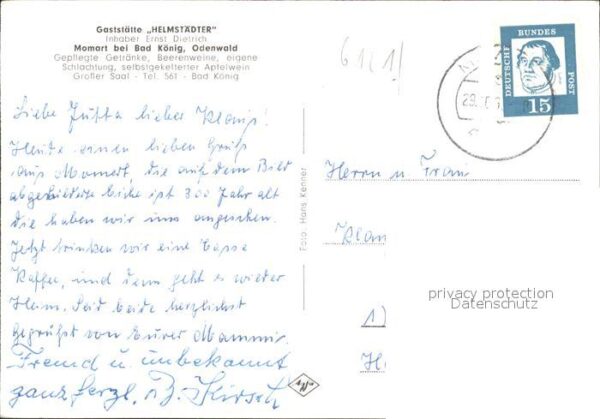 Gaststätte „HELMSTÄDTER"
Inhaber Ernst Dietrich
Momart bei Bad König, Odenwald
Gepflegte Getränke, Beerenweine, eigene
Schlachtung, selbstgekelterter Apfelwein
Großer Saal - Tel. 561 - Bad König
6121
DEUTSCHE BUNDESPOST
15
Liebe Jutta lieber Klaus!
Heute einen lieben Gruß
aus Momart, die auf dem Bild
abgebildete Eiche ist 300 Jahr alt
die haben wir uns angesehen.
Jetzt trinken wir eine Tasse
Kaffee, und dann geht es wieder
Heim. Seid beide herzlichst
gegrüßt von Eurer Mammi.
Fremd u. unbekannt
ganz herzl.
Foto: Hans Kenner
Herrn u Frau
Klau
1
H
privacy protection
Datenschutz